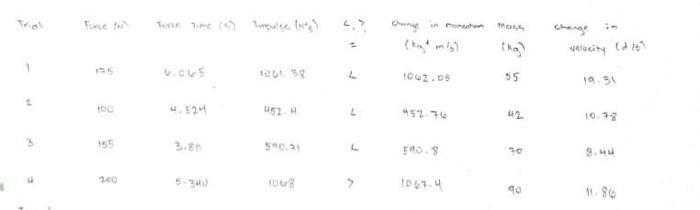 Trial Force (N) Force Time (s) Impulse (N*s) <, >, = change in momentum (kg* m/s) Mass (kg) change in velocity (d/s)
1 175 6.065 1061.38 < 1062.05 55 19.31
2 100 4.524 452.4 < 452.76 42 10.78
3 155 590.21 < 590.8 70 8.44
4 200 5.340 1068 > 1067.4 90 11.86